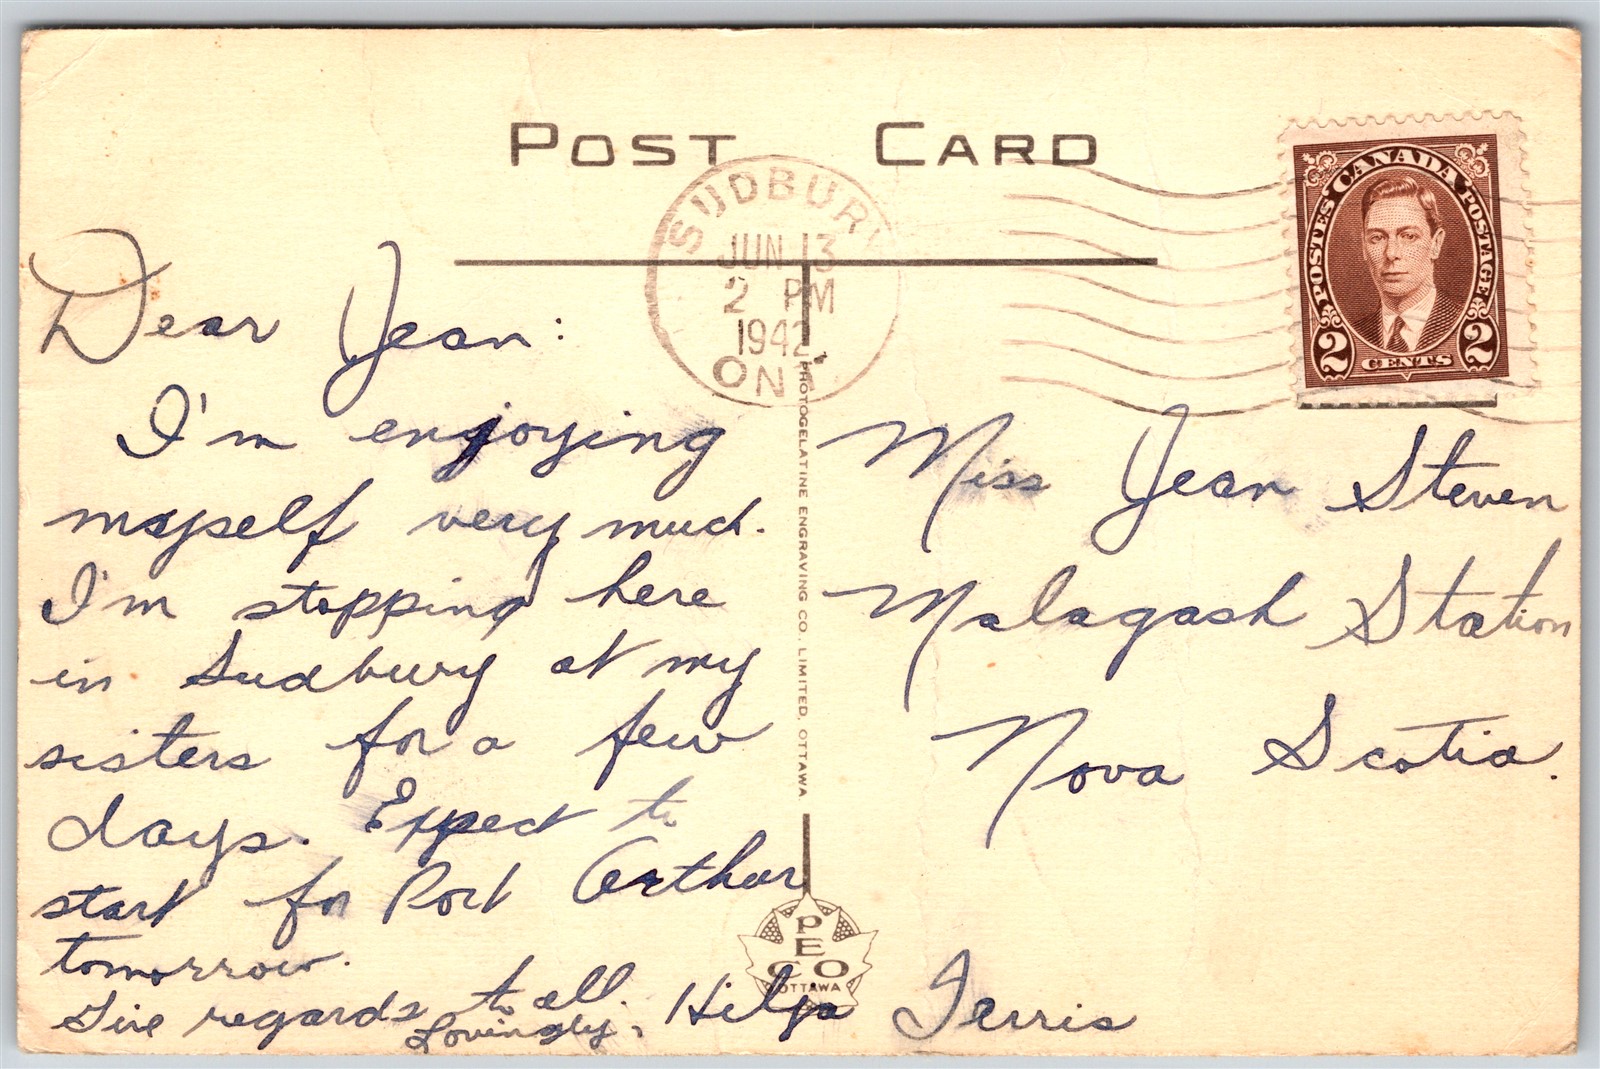 POST CARD
SUDBURY
JUN 13
2 PM
1942
ONT
CANADA
POSTES POSTAGE
2 CENTS 2
Dear Jean:
I'm enjoying
myself very much.
I'm stopping here
in Sudbury at my
sisters for a few
days. Expect to
start for Port Arthur
tomorrow.
Give regards to all.
Lovingly,
Ferris
Miss Jean Steven
Malagash Station
Nova Scotia.
PHOTOGELATINE ENGRAVING CO. LIMITED, OTTAWA
PECO
OTTAWA